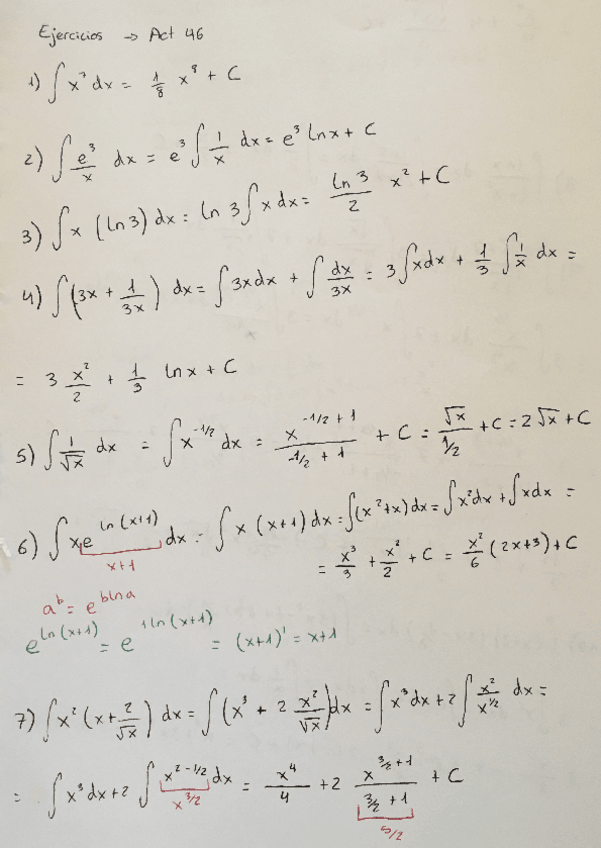 Ejercicios → Act 46
1) ∫ x⁷ dx = 1/8 x⁸ + C
2) ∫ e³/x dx = e³ ∫ 1/x dx = e³ ln x + C
3) ∫ x (ln 3) dx = ln 3 ∫ x dx = ln 3/2 x² + C
4) ∫ (3x + 1/3x) dx = ∫ 3x dx + ∫ dx/3x = 3 ∫ x dx + 1/3 ∫ 1/x dx =
= 3 x²/2 + 1/3 ln x + C
5) ∫ 1/√x dx = ∫ x^(-1/2) dx = x^(-1/2 + 1)/(-1/2 + 1) + C = √x/(1/2) + C = 2√x + C
6) ∫ x e^(ln(x+1)) dx = ∫ x (x+1) dx = ∫ (x² + x) dx = ∫ x² dx + ∫ x dx =
x+1
= x³/3 + x²/2 + C = x²/6 (2x+3) + C
a^b = e^(b ln a)
e^(ln(x+1)) = e^(1 ln(x+1)) = (x+1)¹ = x+1
7) ∫ x² (x + 2/√x) dx = ∫ (x³ + 2 x²/√x) dx = ∫ x³ dx + 2 ∫ x²/x^(1/2) dx =
= ∫ x³ dx + 2 ∫ x^(2 - 1/2) dx = x⁴/4 + 2 x^(3/2 + 1)/(3/2 + 1) + C
x^(3/2) 5/2